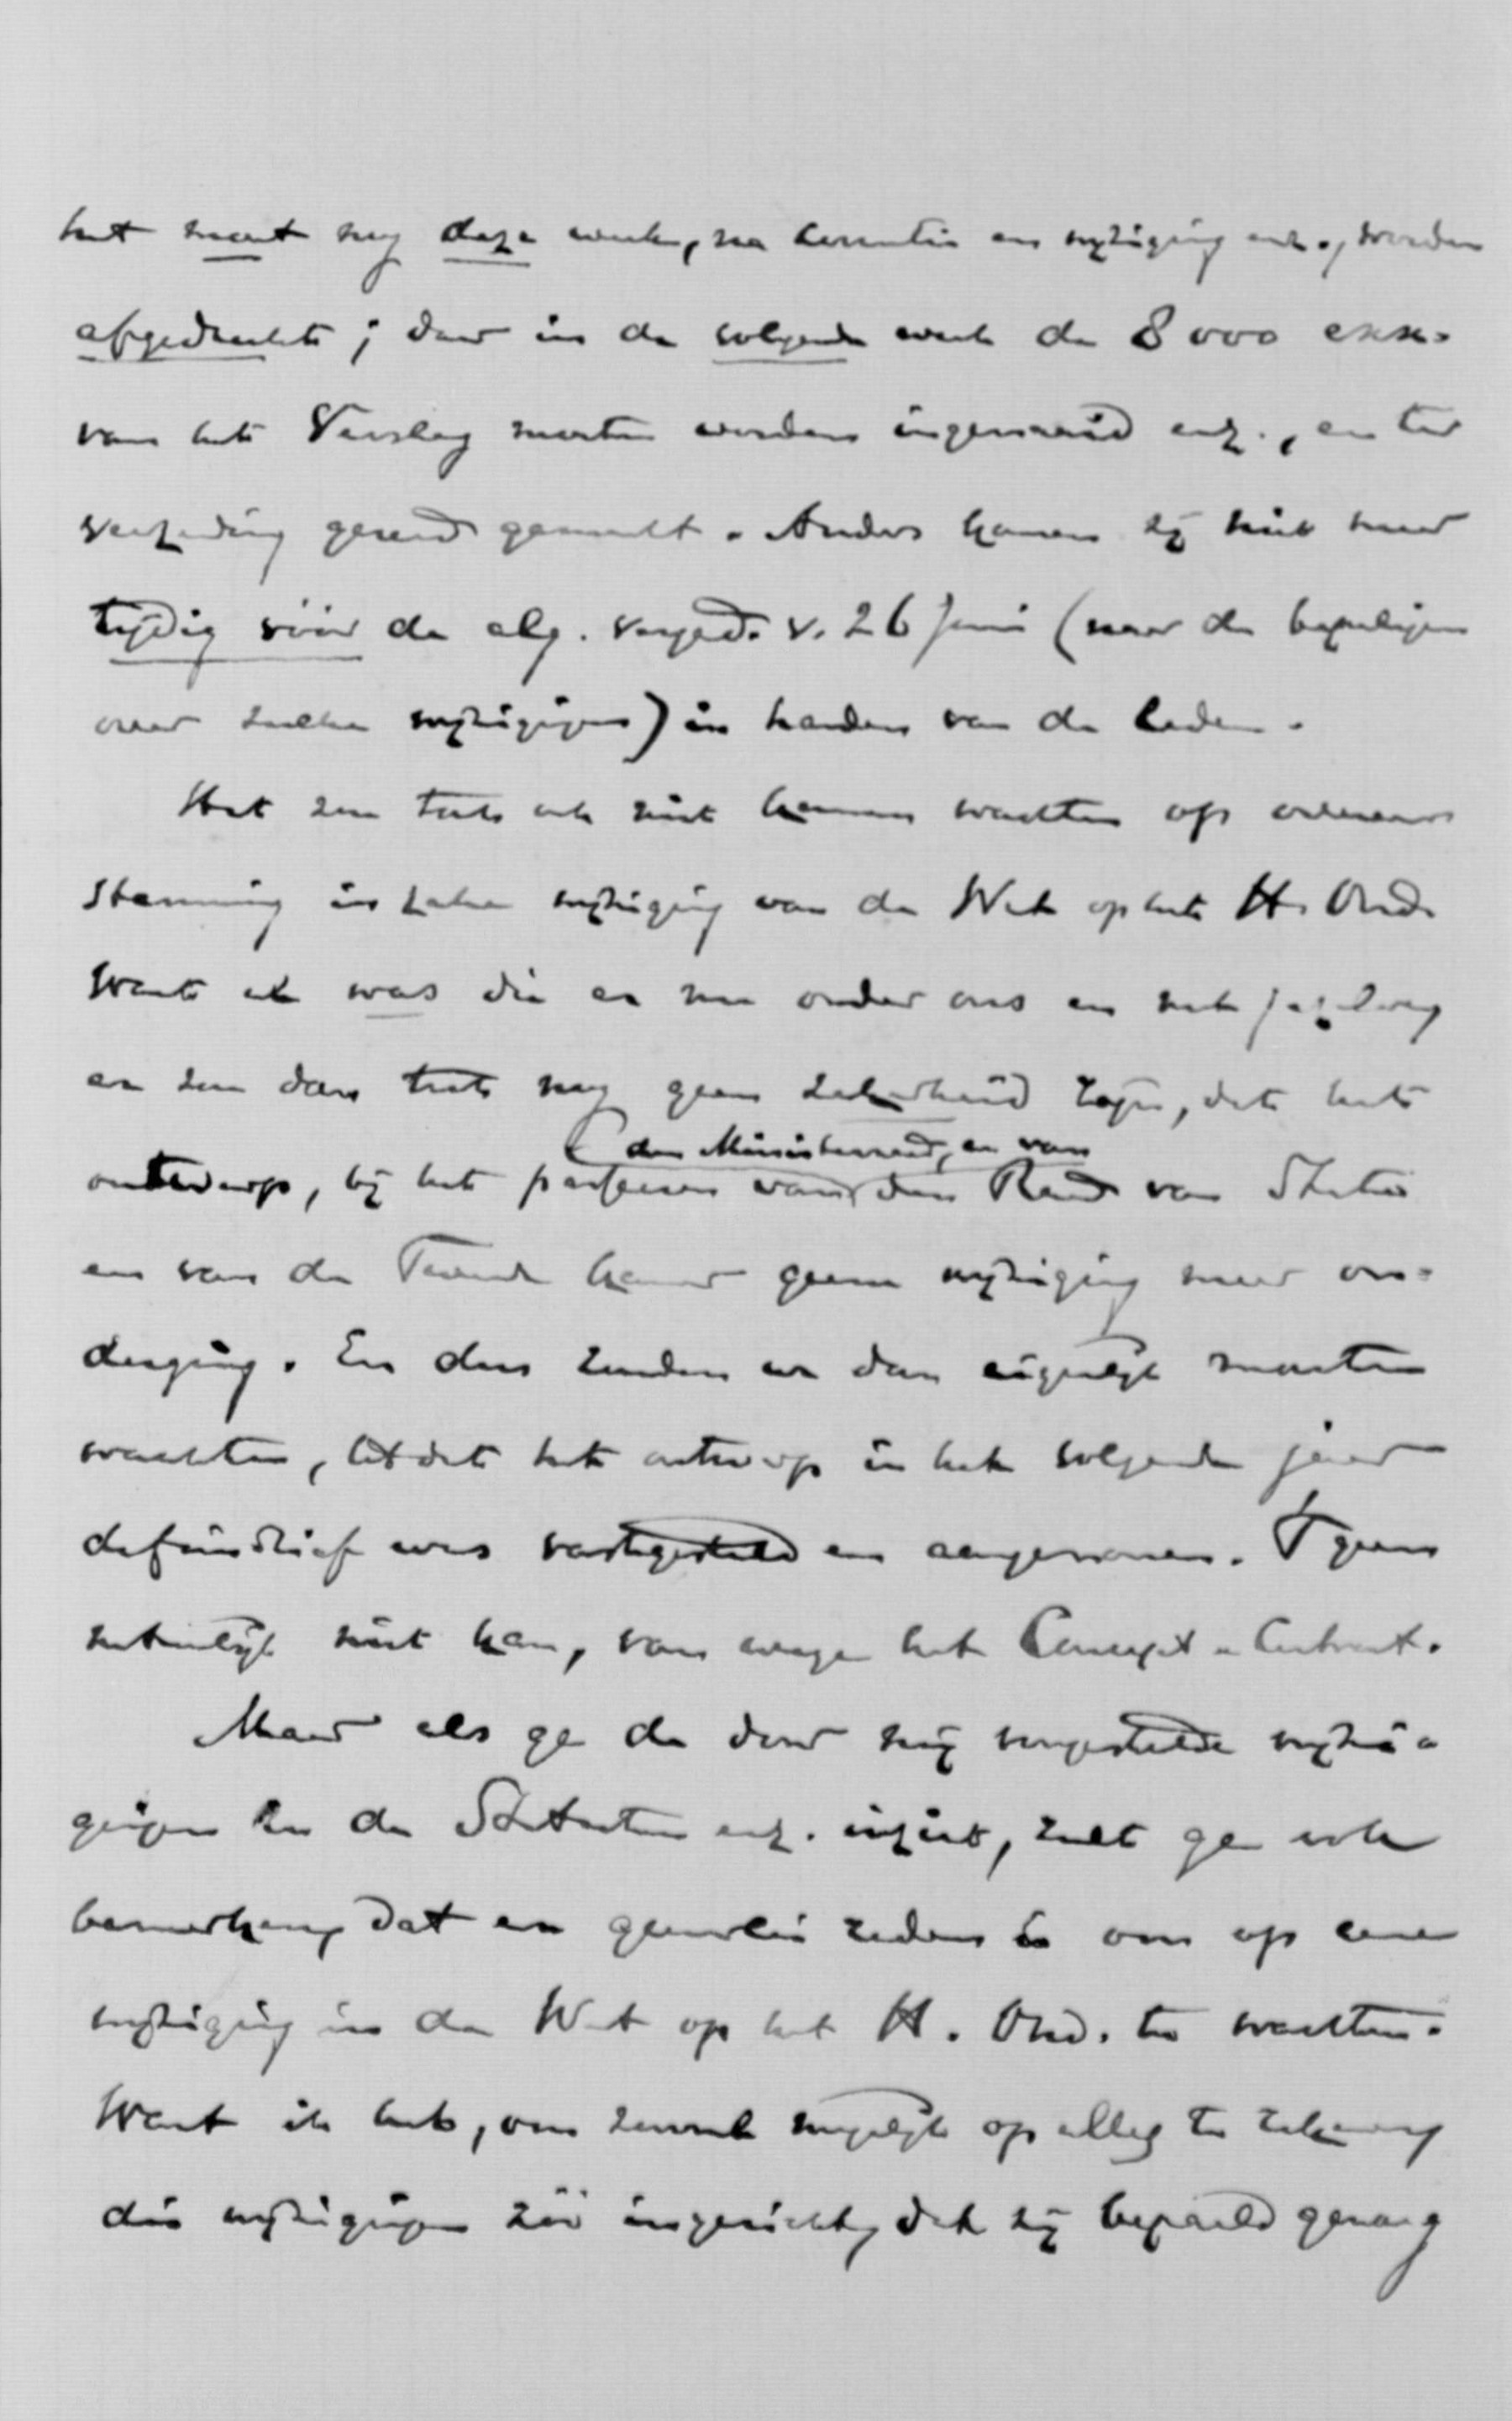 het moet nog deze week, na correctie en wijziging enz., worden
afgedrukt; daar in de volgende week de 8000 exx.
van het Verslag moeten worden ingenaaid enz., en ter
verzending gereed gemaakt. Anders komen zij niet meer
tijdig vóór de alg. vergad. v. 26 Juni (naar de bepalingen
over zulke wijzigingen) in handen van de leden.
Het zou toch ook niet kunnen wachten op overeen-
stemming in zake wijziging van de Wet op het H. Ond.
Want al was die er nu onder ons en met
er zou dan toch nog geen zekerheid zijn, dat het
ontwerp, bij het passeeren van den Ministerraad, en van den Raad van State
en van de Tweede Kamer geene wijziging meer on-
derging. En dus zouden we dan eigenlijk moeten
wachten, totdat het ontwerp in het volgende jaar
definitief was vastgesteld en aangenomen. 'T geen
natuurlijk niet kan, van wege het Concept-Contract.
Maar als ge de door mij voorgestelde wijzi-
gingen in de Statuten enz. inziet, zult ge ook
bemerken, dat er geenerlei reden is om op eene
wijziging in de Wet op het H. Ond. te wachten.
Want ik heb, om zooveel mogelijk op alles te rekenen,
die wijzigingen zóó ingericht, dat zij bepaald genoeg